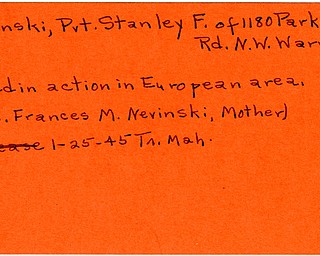 nski, Pvt. Stanley F. of 1180 Park
Rd. N.W. War
d in action in European area.
. Frances M. Nevinski, Mother)
ease 1-25-45 Tr. Mah.